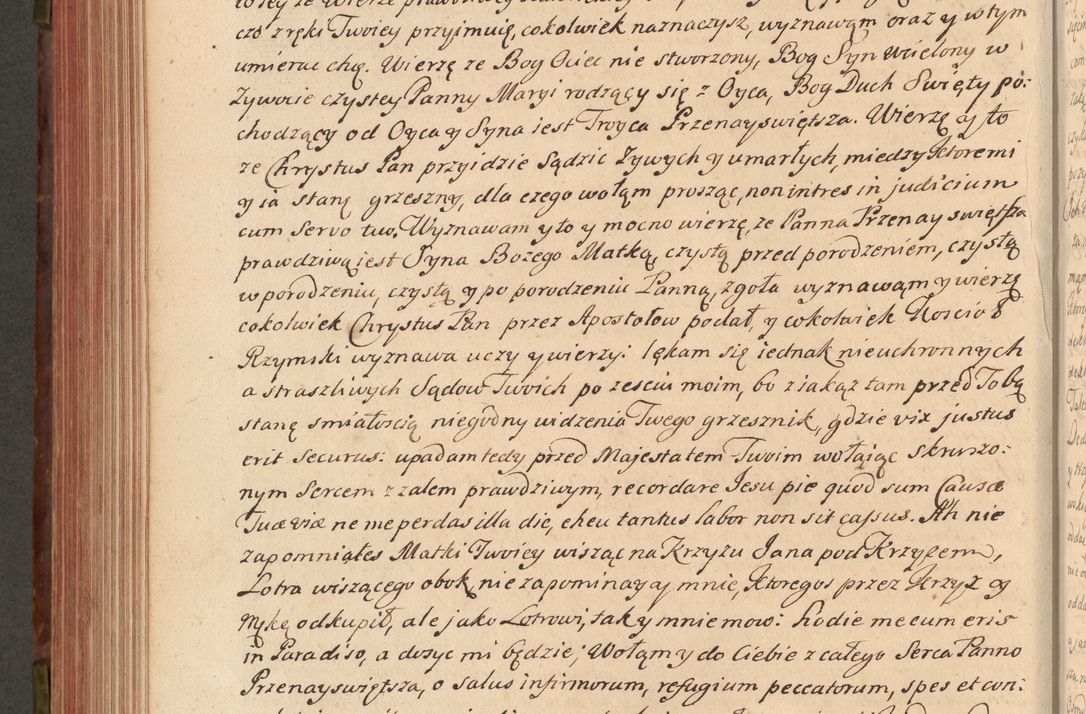 co z ręki Twoiey przyimuię, cokolwiek naznaczysz, wyznawąm oraz y w tym
umierac chcę. Wierzę ze Bog Ociec nie stworzony, Bog Syn wcielony w
Zywocie czystey Panny Maryi rodzący się z Oyca, Bog Duch Swięty po:
chodzący od Oyca y Syna iest Troyca Przenayswiętsza. Wierzę y to
ze Chrystus Pan przyidzie Sądzic Zywych y umarłych, miedzy Ktoremi
y ia stanę grzeszny, dla czego wołąm prosząc, non intres in judicium
cum Servo tuo. Wyznawam y to y mocno wierzę, ze Panna Przenayswiętsza
prawdziwą iest Syna Bozego Matką, czystą przed porodzeniem, czystą
w porodzeniu, czystą y po porodzeniu Panną, zgoła wyznawąm y wierzę
cokolwiek Chrystus Pan przez Apostołow podał, y cokolwiek Koscioł
Rzymski wyznawa uczy y wierzy: lękam się iednak nieuchronnych
a straszliwych Sądow Twoich po zesciu moim, bo z iakąz tam przed Tobą
stanę smiałoscią niegodny widzenia Twego grzesznik, gdzie vix justus
erit Securus: upadam tedy przed Majestatem Twoim wołąiąc skruszo:
nym Sercem z zalem prawdziwym, recordare Jesu pie quod sum Causæ
Tuæ viæ ne me perdas illa die, eheu tantus labor non sit cassus. Ah nie
zapomniałes Matki Twoiey wisząc na Krzyzu Jana pod Krzyzem,
Lotra wiszącego obok, nie zapominay y mnie, Ktoregos przez Krzyz y
Mękę odkupił, ale jako Lotrowi, tak y mnie mow: hodie mecum eris
in Paradiso, a dosyc mi będzie; Wołąm y do Ciebie z całego Serca Panno
Przenayswiętsza, o salus infirmorum, refugium peccatorum, spes et con: